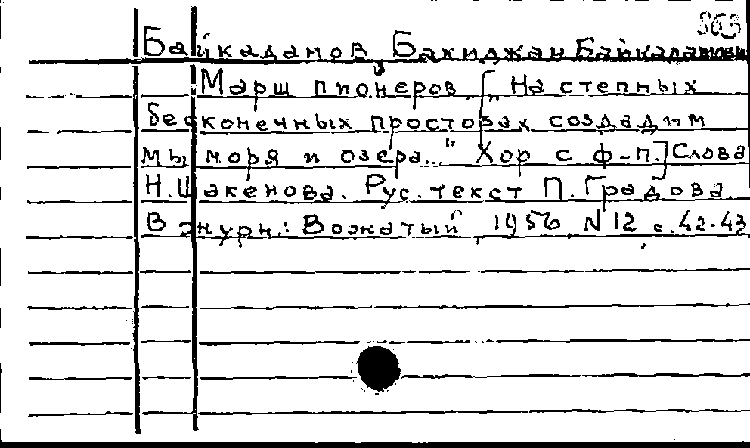 863
Байкадамов, Бакиджан Байкадамович
Марш пионеров. [„На степных
бесконечных просторах создадим
мы моря и озера..." Хор с ф-п.] Слова
Н. Шакенова. Рус. текст П. Градова.
В журн.: Вожатый, 1956, N 12, с. 42-43